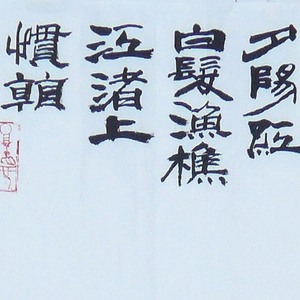 夕陽紅
白髮漁樵
江渚上
慣